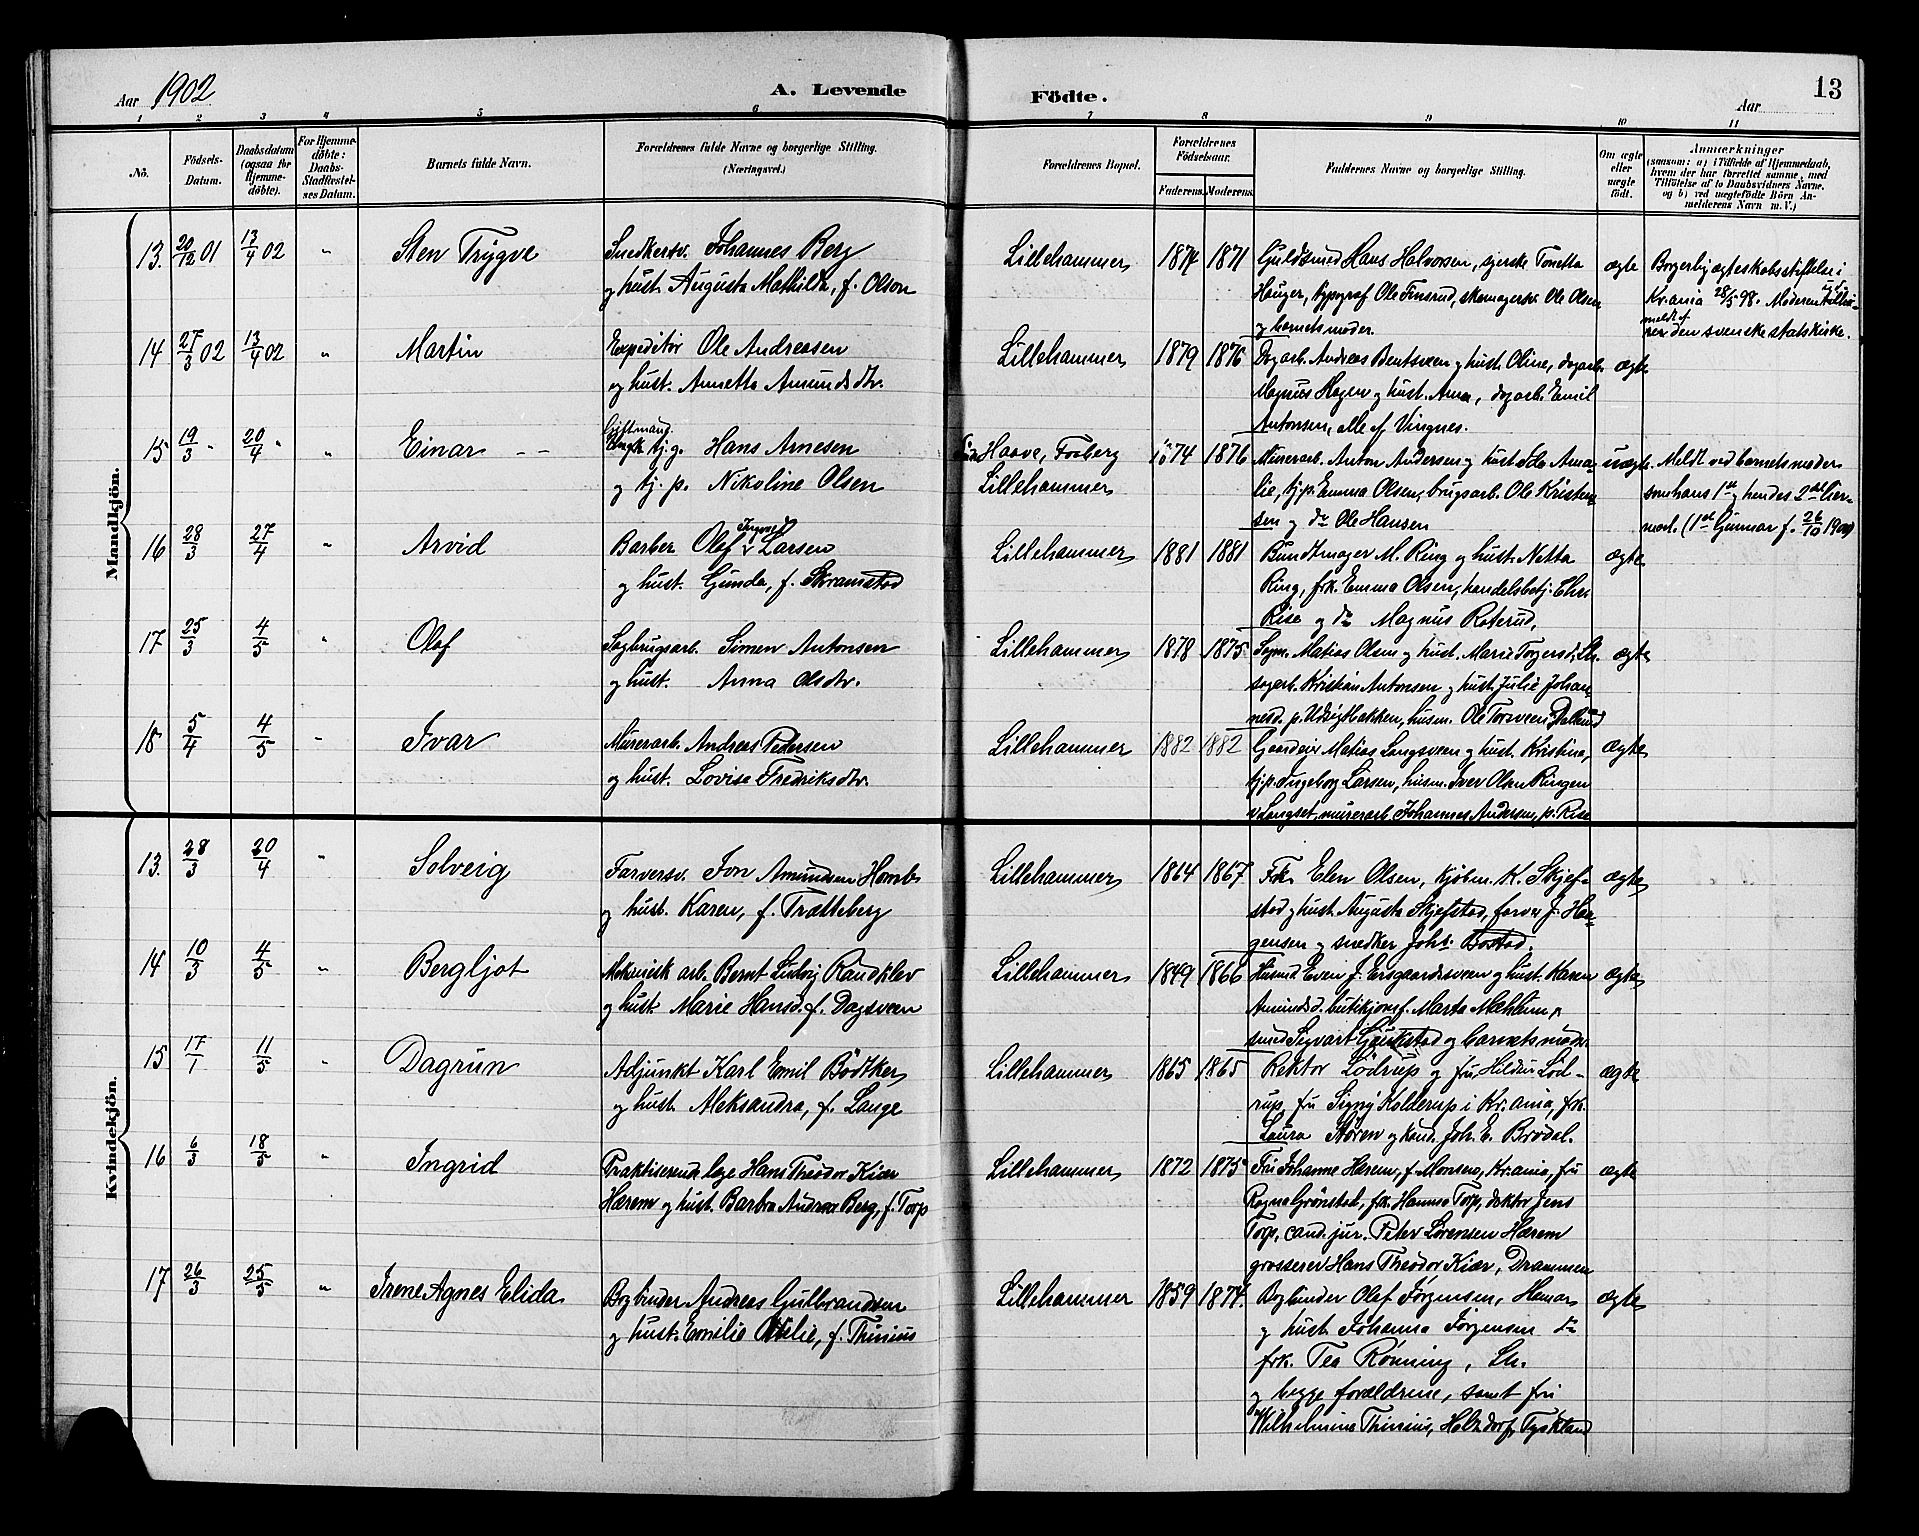 Aar 1902
A. Levende
Födte.
Aar
13
1 2 3 4 5 6 7 8 9 10 11
No.
Födsels-
Datum.
Daabsdatum
(ogsaa for
Hjemme-
döbte).
For Hjemme-
döbte:
Daabs-
Stadfæstel-
ses Datum.
Barnets fulde Navn.
Forældrenes fulde Navne og borgerlige Stilling.
(Næringsvei.)
Forældrenes Bopæl.
Forældrenes
Födselsaar.
Faderens. Moderens.
Faddernes Navne og borgerlige Stilling.
Om ægte
eller
uægte
födt.
Anmærkninger
(saasom: a) i Tilfælde af Hjemmedaab,
hvem der har forrettet samme, med
Tilföielse af to Daabsvidners Navne,
og b) ved uægtefödte Börn An-
melderens Navn m. V.)
Mandkjön.
13. 20/12 01 13/4 02 " Sten Trygve
Snedkersv. Johannes Berg
og hust. Augusta Mathilde, f. Olson
Lillehammer 1874 1871
Guldsmed Hans Halvorsen, syerske Tonetta
Hauger, typograf Ole Finsrud, skomagersv. Ole Olsen
og barnets moder.
ægte
Borgerlig ægteskabsstiftelse i
Kr.ania 28/5 98. Moderen
meldt af
den svenske statskirke.
14 27/3 02 13/4 02 " Martin
Expeditör Ole Andreasen
og hust. Annetta Amundsdtr.
Lillehammer 1879 1876
Dagarb. Andreas Bentsveen og hust. Oline, dagarb.
Magnus Hagen og hust. Anna, dagarb. Emil
Antonsen, alle af Vingnes.
ægte
15 19/3 " 20/4 " " Einar
Giftmand
tj.g. Hans Arnesen
og tj. p. Nikoline Olsen
Haave, Faaberg
Lillehammer
1874 1876
Murerarb. Anton Andersen og hust. Ida Ama-
lie, tj.p. Emma Olsen, brugsarb. Ole Kristen-
sen og do Ole Hansen
uægte
Meldt ved barnets moder
som hans 1ste og hendes 2det leier-
maal. (1ste Gunnar f. 26/10 1900)
16 28/3 27/4 " Arvid
Barber Olaf Ingvald Larsen
og hust. Gunda, f. Skramstad
Lillehammer 1881 1881
Bundtmager M. Ring og hust. Netta
Ring, frk. Emma Olsen, handelsbetj. Chr.
Rise og do Magnus Roterud.
ægte
17 25/3 4/5 " Olaf
Sagbrugsarb. Simen Antonsen
og hust. Anna Olsdtr.
Lillehammer 1878 1875
Matias Olsen og hust. Marie Torgersd., Lh.
sagarb. Kristian Antonsen og hust. Julie Johan-
nesd. p. Udsigtbakken, husm. Ole
ægte
18 5/4 4/5 " Ivar
Murerarb. Andreas Pedersen
og hust. Lovise Fredriksdtr.
Lillehammer 1882 1882
Gaardeier Matias Langsveen og hust. Kristine,
tj.p. Ingeborg Larsen, husm. Iver Olsen Ringen
v. Langset, murerarb. Johannes Andersen, p. Rise
ægte
Kvindekjön.
13. 28/3 20/4 " Solveig
Farversv. Jon Amundsen Homb
og hust. Karen, f. Tratteberg
Lillehammer 1864 1867
Frk. Elen Olsen, kjøbm. K. Skjef-
stad og hust. Augusta Skjefstad, farver J. Haa-
gensen og snedker Johs. Bostad.
ægte
14 10/3 4/5 " Bergljot
Mekanisk arb. Bernt Ludvig Randklev
og hust. Marie Hansd. f. Dagsveen
Lillehammer 1849 1866
Husmd. Even J. Ersgaardsveen og hust. Karen
Amundsd. butikjomf. Marta Mæhlum,
smed Sigvart Gjerkstad og barnets moder.
ægte
15 17/1 11/5 " Dagrun
Adjunkt Karl Emil Bödtker
og hust. Aleksandra, f. Lange
Lillehammer 1865 1865
Rektor Lödrup og fru Hildur Löd-
rup, fru Signy Kolderup i Kr.ania, frk.
Laura Støren og kand. Joh. E. Brodal.
ægte
16 6/3 18/5 " Ingrid
Praktiserende læge Hans Theodor Kiær
Hærem og hust. Barbra Andrea Berg, f. Torp
Lillehammer 1872 1875
Fru Johanne Hærem, f. Monsen, Kr.ania, fru
Ragna Grønstad, frk. Hanna Torp, doktor Jens
Torp, cand. jur. Peter Lorensen Hærem
grosserer Hans Theodor Kiær, Drammen
ægte
17 26/3 25/5 " Irene Agnes Elida
Bogbinder Andreas Gulbrandsen
og hust. Emilie Ottilie, f. Thinius
Lillehammer 1859 1874.
Bogbinder Olaf Jørgensen, Hamar
og hust. Johanna Jørgensen do
frk. Tea Rønning, Lh.
og begge forældrene, samt fru
Wilhelmine Thinius, Holzdorf, Tyskland
ægte